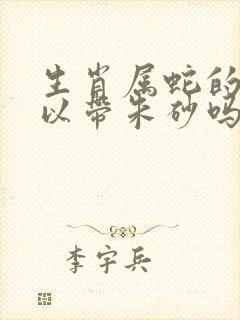 生肖属蛇的
以带朱砂吗
李宇兵